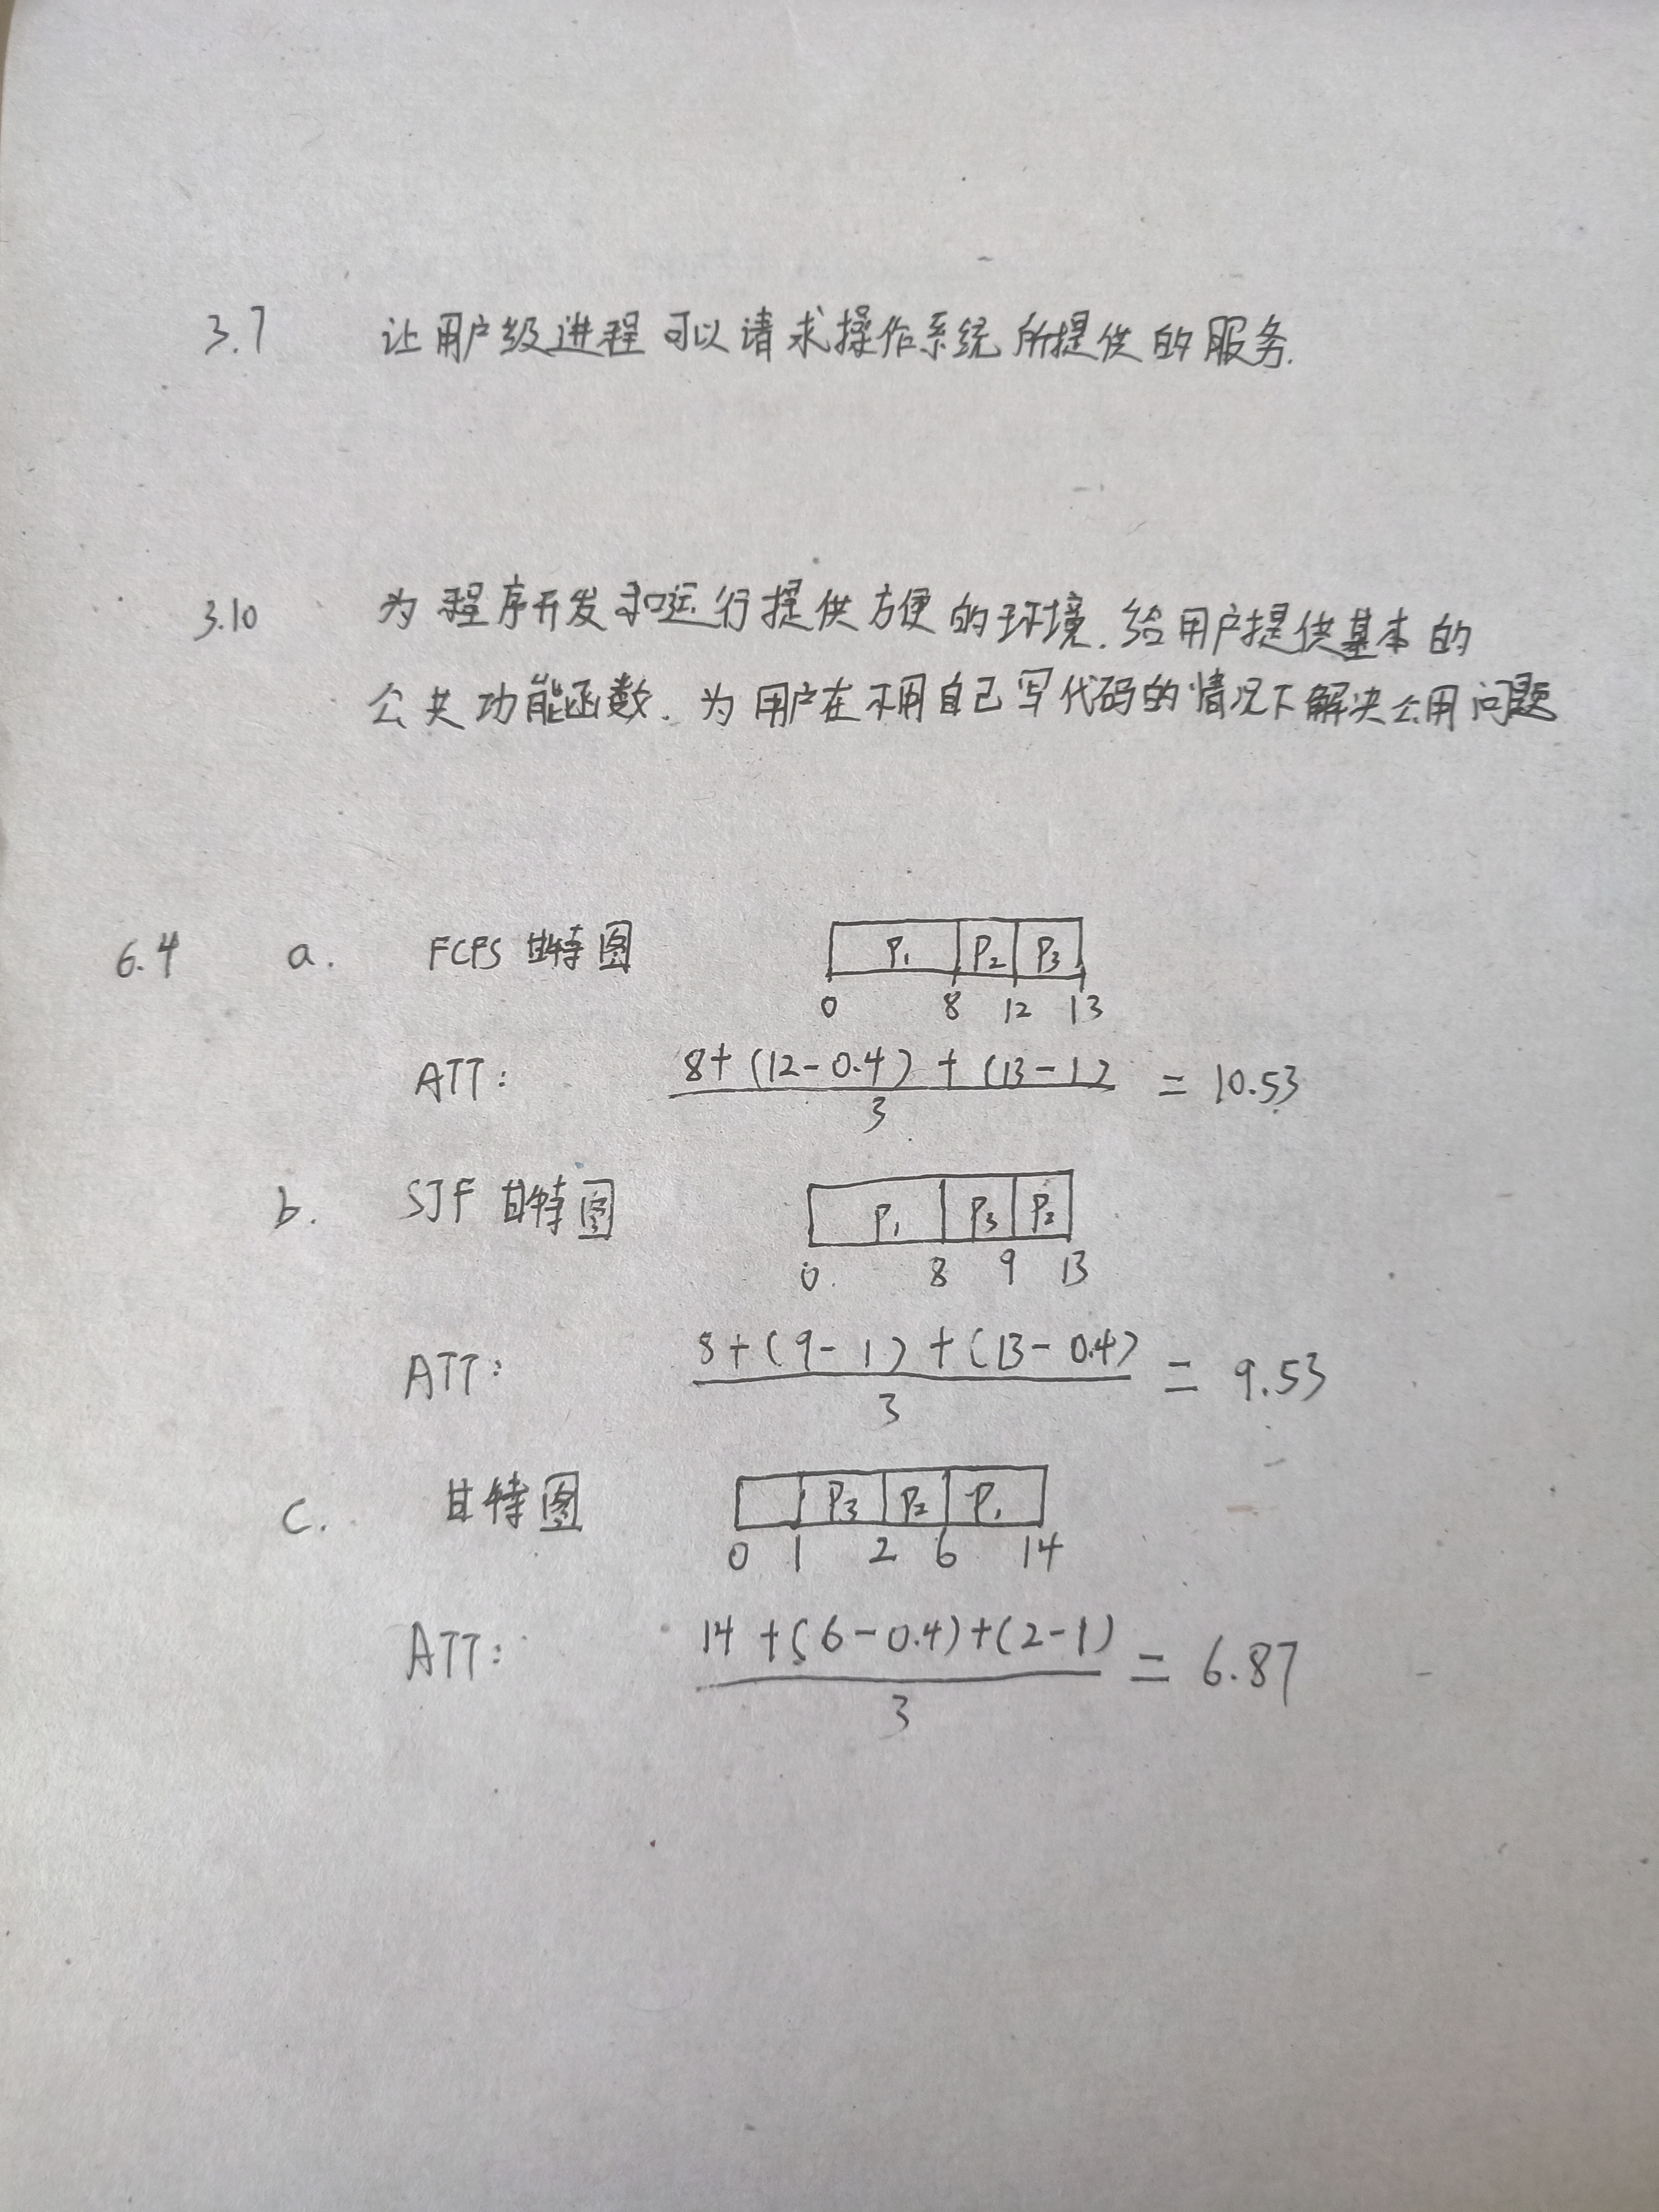 3.7 让用户级进程可以请求操作系统所提供的服务.
3.10 为程序开发和运行提供方便的环境.给用户提供基本的
公共功能函数.为用户在不用自己写代码的情况下解决公用问题
6.4 a. FCFS 甘特图 P1 P2 P3
0 8 12 13
ATT: 8+(12-0.4)+(13-1) / 3 = 10.53
b. SJF 甘特图 P1 P3 P2
0 8 9 13
ATT: 8+(9-1)+(13-0.4) / 3 = 9.53
c. 甘特图 P3 P2 P1
0 1 2 6 14
ATT: 14+(6-0.4)+(2-1) / 3 = 6.87